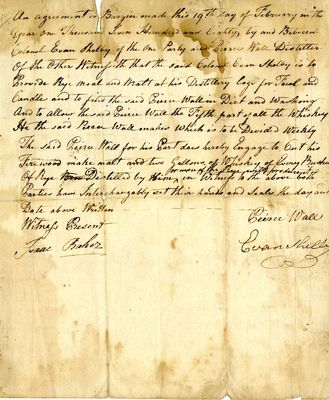 An agreement or Bargin made this 19th day of February in the
Year one Thousand Seven Hundred and Eighty, by and Between
Colonel Evan Shelby of the One Party and Peirce Wall Distiller
Of the Other Witnesseth that the said Colonel Evan Shelby is to
Provide Rye Meal and Malt at his Distillery Cags for Faul and
Candles and to find the said Peirce Wall in Diet and Washing
And to allow the said Peirce Wall the Fifth part of all the Whiskey
He the said Peirce Wall makes which is to be Divided Weekly
The said Peirce Wall for his Part does hereby Engage to Cut his
Firewood make malt and two Gallons of Whiskey of Every Bushel
Of Rye Distilled by Him, in Witness to the above both
Parties have Interchangably set their hands and Seales, the day and
Date above Written
Witness Present
Peirce Wall
Isaac Baker
Evan Shelby